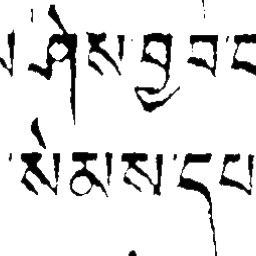 ཤེས་བྱ་བ
སེམས་དཔ